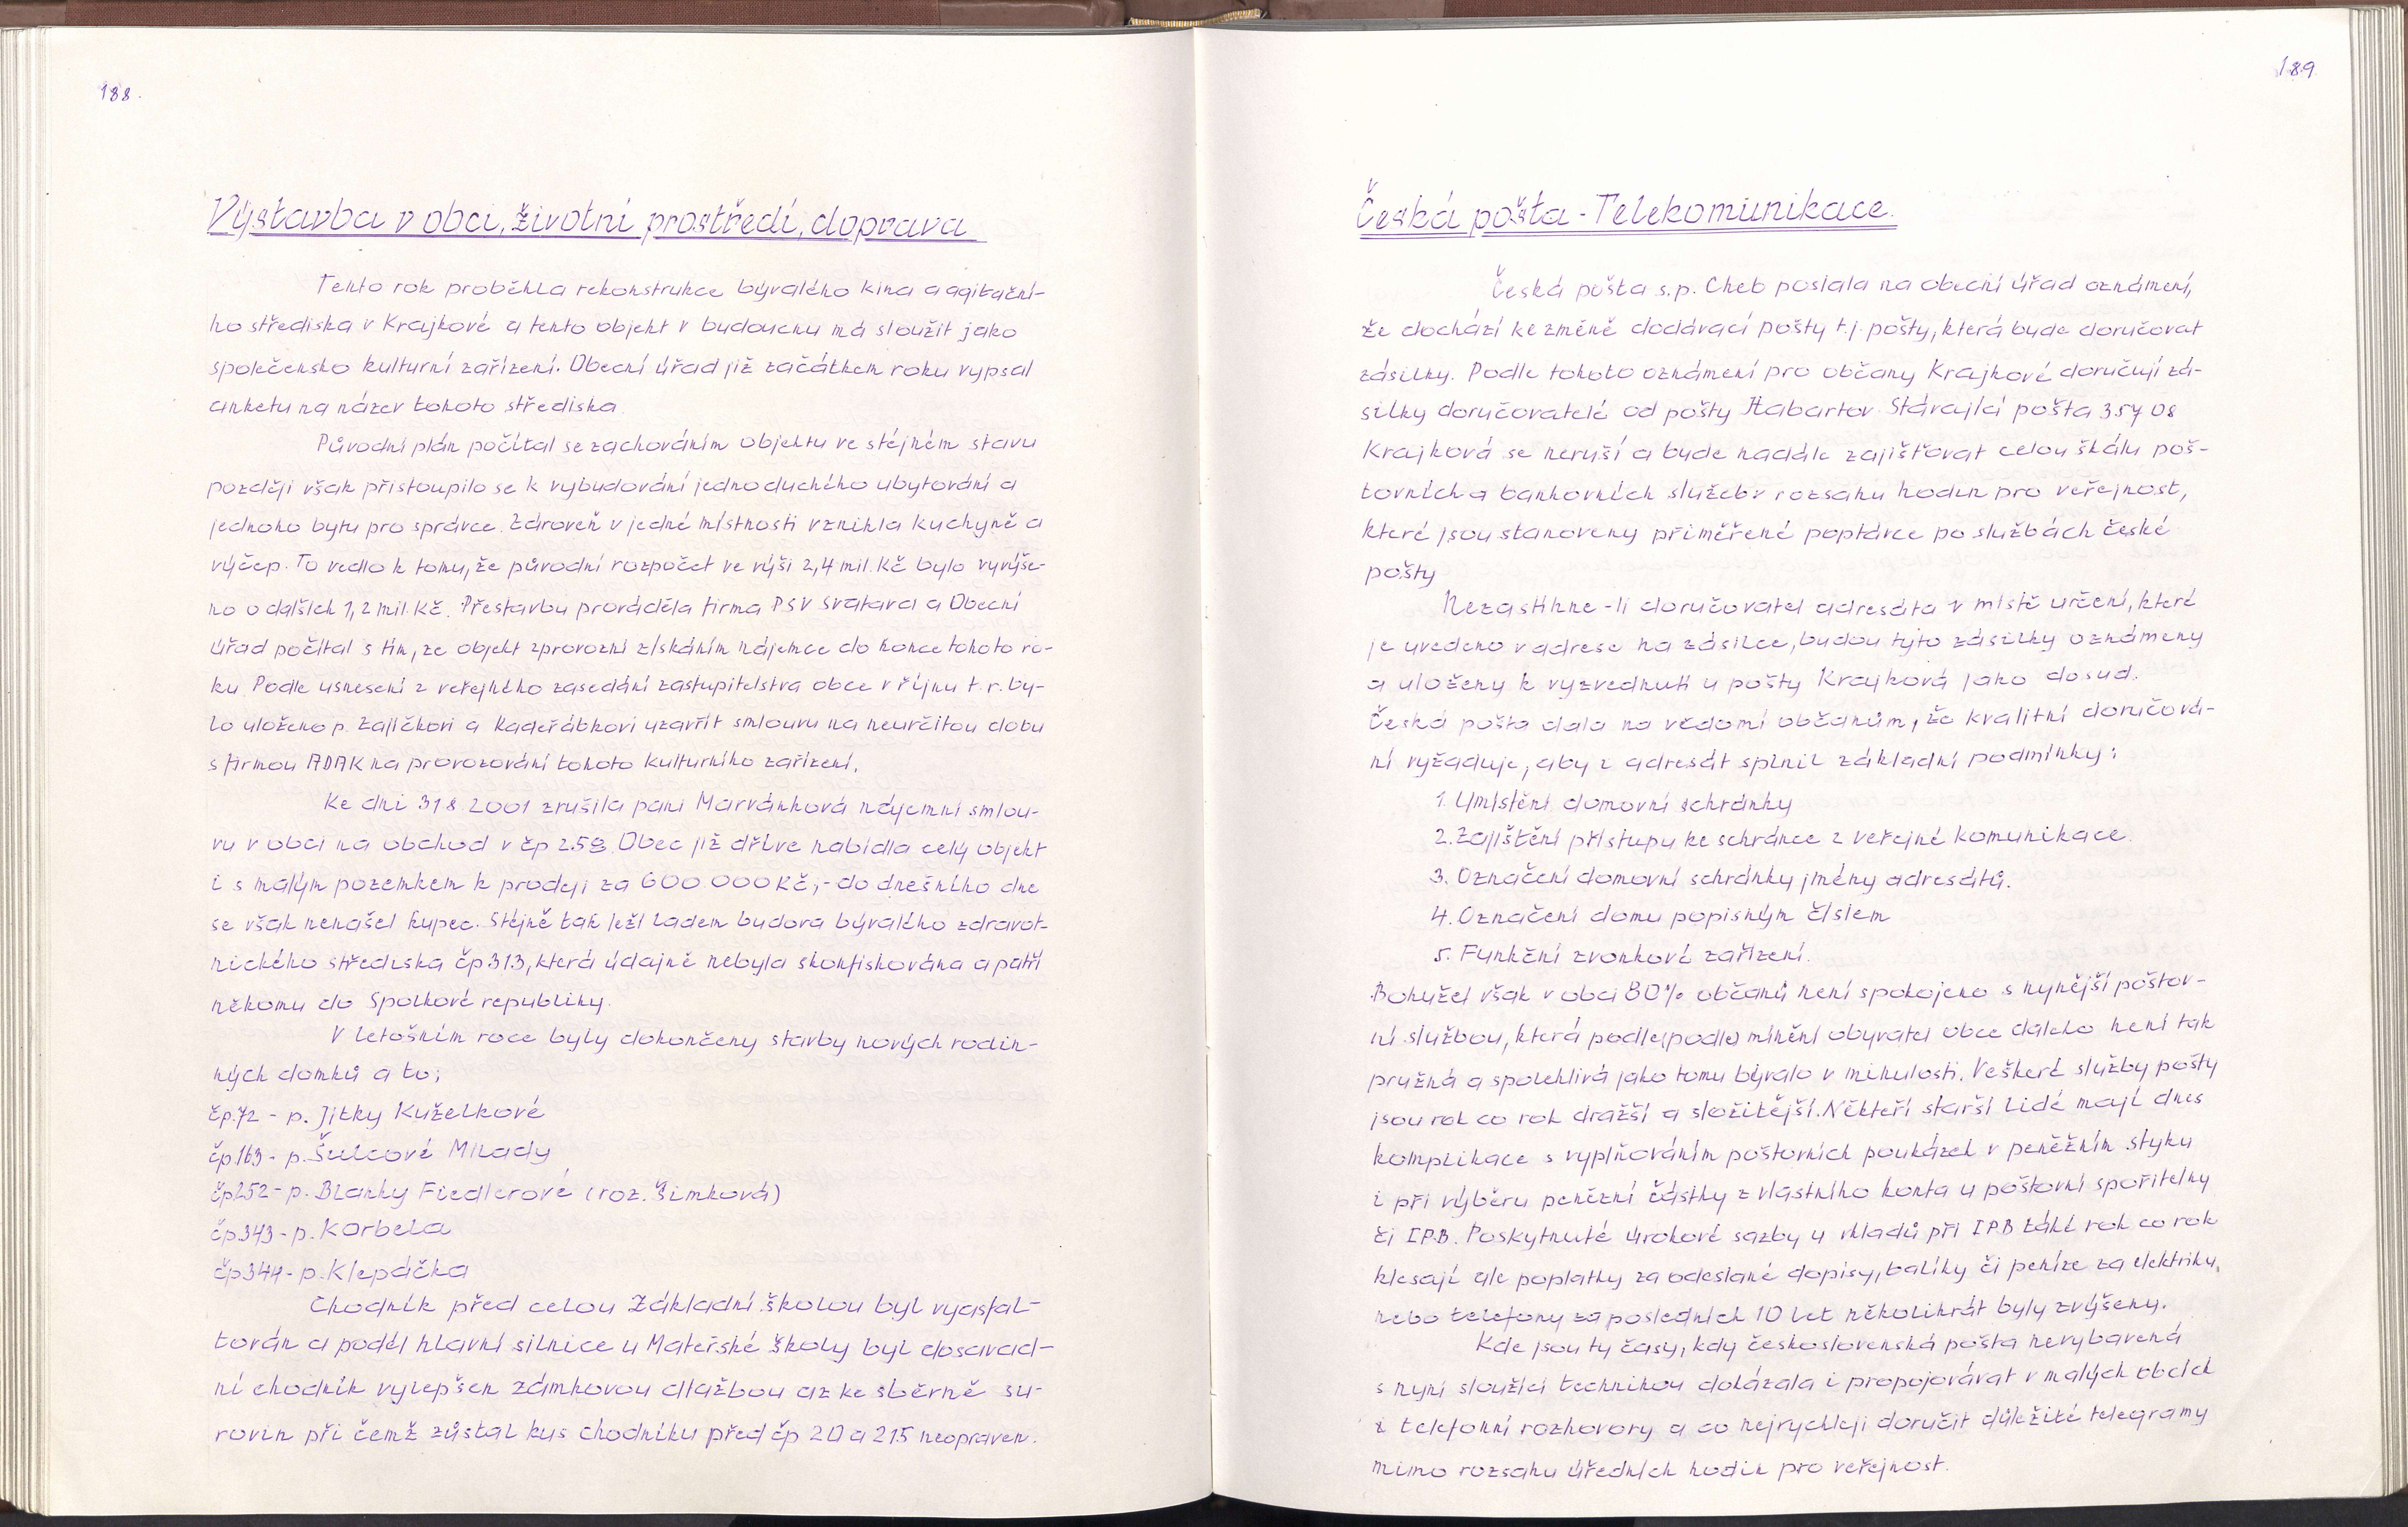 188.
Výstavba v obci, životní prostředí, doprava
Tento rok proběhla rekonstrukce bývalého kina a agitační-
ho střediska v Krajkové a tento objekt v budoucnu má sloužit jako
společensko kulturní zařízení. Obecní úřad již začátkem roku vypsal
anketu na název tohoto střediska.
Původní plán počítal se zachováním objektu ve stéjném stavu
pozdčji však přistoupilo se k vybudování jednoduchého ubytování a
jednoho bytu pro správce. Zároveň v jedné místnosti vznikla kuchyně a
výčep. To vedlo k tomu, že původní rozpočet ve výši 2,4 mil. Kč bylo vyvýše-
no o dalších 1,2 mil. Kč. Přestavbu prováděla firma PSV Svatava a Obecní
úřad počítal s tím, ze objekt zprovozní získáním nájemce do konce tohoto ro-
ku. Podle usnesení z veřejného zasedání zastupitelstva obce v říjnu t.r. by-
lo uloženo p. Zajíčkovi a Kadeřábkovi uzavřít smlouvu na neurčitou dobu
s firmou ADAK na provozování tohoto kulturního zařízení.
Ke dni 31 8 2001 zrušila paní Marvánková nájemní smlou-
vu v obci na obchod v čp 258. Obec již dříve nabídla celý objekt
i s malým pozemkem k prodeji za 600 000 Kč,- do dnešního dne
se však nenašel kupec. Stéjně tak leží ladem budova bývalého zdravot-
nického střediska čp 313, která údajně nebyla skonfiskována a patří
někomu do Spolkové republiky.
V letošním roce byly dokončeny stavby nových rodin-
ných domků a to;
čp.72 - p. Jitky Kuželkové
čp163 - p. Šulcové Milady
čp252 - p. Blanky Fiedlerové (roz. Šimková)
čp343 - p. Korbela
čp344 - p. Klepáčka
Chodník před celou Základní školou byl vyasfal-
tován a podél hlavní silnice u Mateřské školy byl dosavad-
ní chodník vylepšen zámkovou dlažbou az ke sběrně su-
rovin při čemž zůstal kus chodníku před čp 20 a 215 neopraven.
189
Česká pošta - Telekomunikace.
Česká pošta s.p. Cheb poslala na obecní úřad oznámení,
že dochází ke změně dodávací pošty t.j. pošty, která bude doručovat
zásilky. Podle tohoto oznámení pro občany Krajkové doručují zá-
silky doručovatelé od pošty Habartov. Stávající pošta 357 08
Krajková se neruší a bude nadále zajišťovat celou škálu poš-
tovních a bankovních služeb v rozsahu hodin pro veřejnost,
které jsou stanoveny přiměřené poptávce po službách české
pošty
Nezastihne-li doručovatel adresáta v místě určení, které
je uvedeno v adrese na zásilce, budou tyto zásilky oznámeny
a uloženy k vyzvednutí u pošty Krajková jako dosud.
Česká pošta dala na vědomí občanům, že kvalitní doručová-
ní vyžaduje, aby z adresát splnil základní podmínky:
1. Umístění domovní schránky
2. Zajištění přístupu ke schránce z veřejné komunikace.
3. Označení domovní schránky jmény adresátů.
4. Označení domu popisným číslem
5. Funkční zvonkové zařízení.
Bohužel však v obci 80% občanů není spokojeno s nynější poštov-
ní službou, která podle(podle) mínění obyvatel obce daleko není tak
pružná a spolehlivá jako tomu bývalo v minulosti. Veškeré služby pošty
jsou rok co rok dražší a složitější. Někteří starší lidé mají dnes
komplikace s vyplňováním poštovních poukázek v peněžním styku
i při výběru penězní částky z vlastního konta u poštovní spořitelny
či IPB. Poskytnuté úrokové sazby u vkladů při IPB také rok co rok
klesají ale poplatky za odeslané dopisy, balíky či peníze za elektriku,
nebo telefony za posledních 10 let několikrát byly zvýšeny.
Kde jsou ty časy, kdy československá pošta nevybavená
s nyní sloužící technikou dokázala i propojovávat v malých obcích
i telefonní rozhovory a co nejrychleji doručit důležité telegramy
mimo rozsahu úředních hodin pro veřejnost.